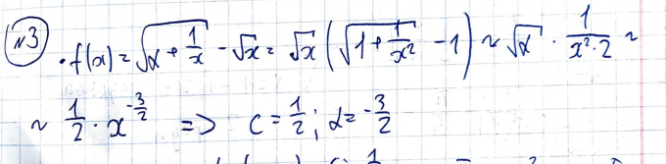 №3 . f(x) = √(x + 1/x) - √x = √x (√(1 + 1/x²) - 1) ~ √x · 1/(x²·2) ~
~ 1/2 · x^(-3/2) => C = 1/2; α = -3/2